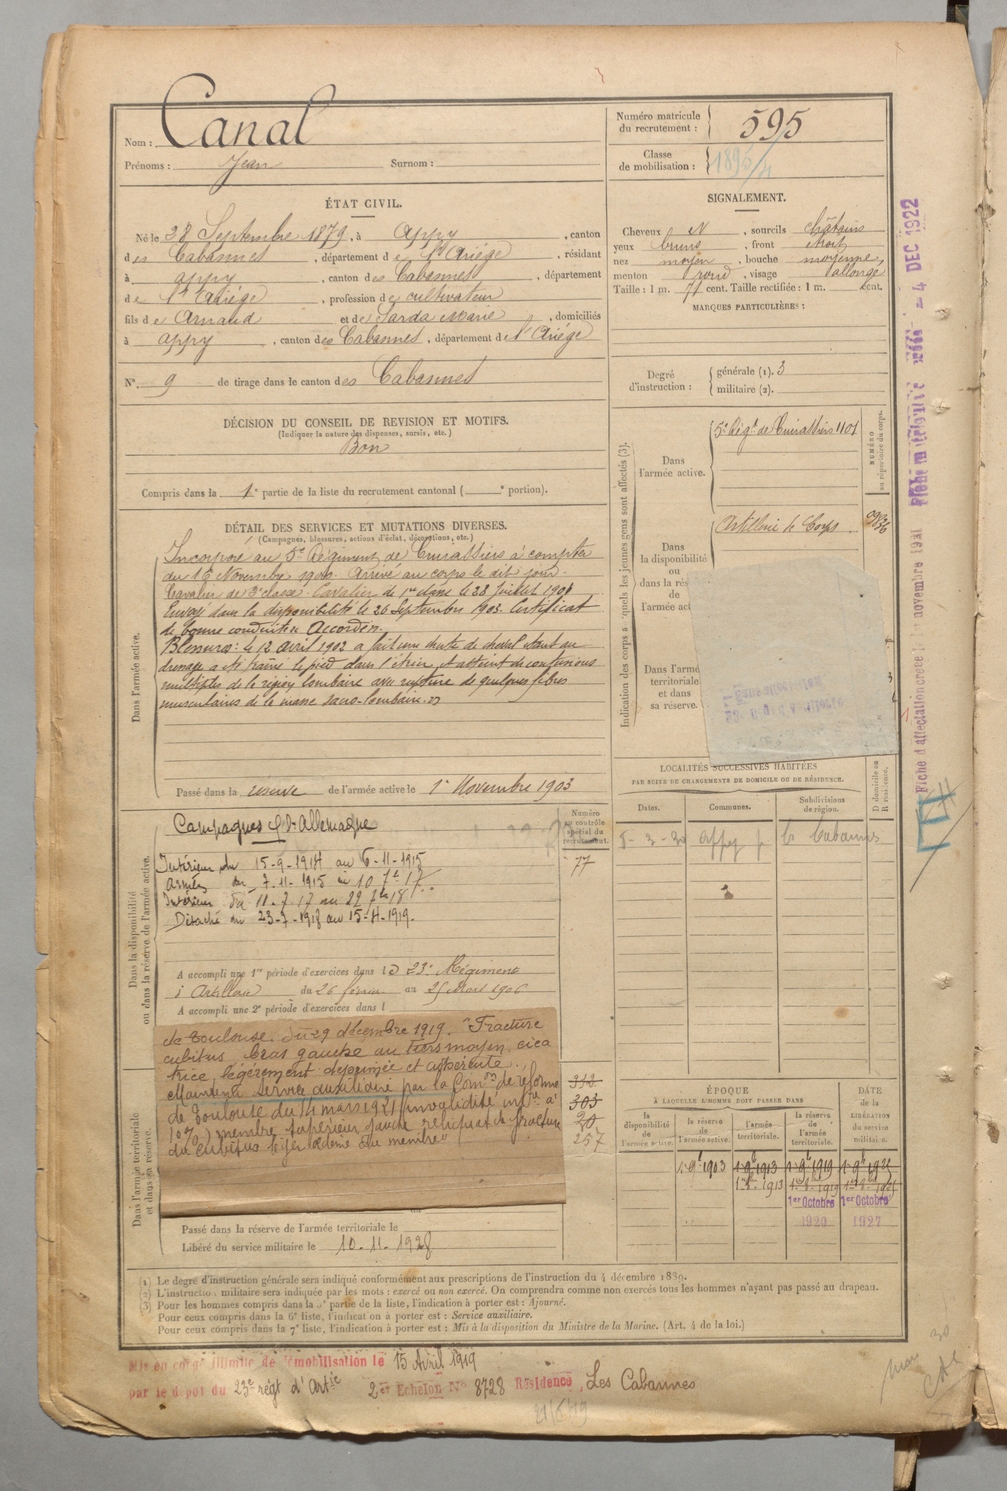 Nom : Canal
Prénoms : Jean Surnom :
Numéro matricule
du recrutement : 595
Classe
de mobilisation :
ÉTAT CIVIL.
Né le 28 Septembre 1879, à Appy, canton
des Cabannes, département de l'Ariége, résidant
à Appy, canton des Cabannes, département
de l'Ariége, profession de cultivateur
fils de Arnaud et de Sarda Marie, domiciliés
à Appy, canton des Cabannes, département de l'Ariége
N° 9 de tirage dans le canton des Cabannes
SIGNALEMENT.
Cheveux N, sourcils châtains
yeux bruns, front étroit
nez moyen, bouche moyenne
menton rond, visage allongé
Taille : 1 m. 71 cent. Taille rectifiée : 1 m. cent.
MARQUES PARTICULIÈRES :
Degré
d'instruction :
générale (1). 3
militaire (2).
DÉCISION DU CONSEIL DE REVISION ET MOTIFS.
(Indiquer la nature des dispenses, sursis, etc.)
Bon
Compris dans la 1e partie de la liste du recrutement cantonal ( e portion).
DÉTAIL DES SERVICES ET MUTATIONS DIVERSES.
(Campagnes, blessures, actions d'éclat, décorations, etc.)
Dans l'armée active.
Incorporé au 5e Régiment de Cuirassiers à compter
du 16 Novembre 1900. Arrivé au corps le dit jour.
Cavalier de 2e classe. Cavalier de 1re classe le 28 Juillet 1901
Envoyé dans la disponibilité le 26 Septembre 1903. Certificat
de bonne conduite Accordé.
Blessures : le 12 avril 1902 a fait une chute de cheval étant au
manège a été traîné le pied dans l'étrier, et atteint de contusions
multiples de la région lombaire avec rupture de quelques fibres
musculaires de la masse sacro-lombaire.
Passé dans la réserve de l'armée active le 1er Novembre 1903
Indication des corps auxquels les jeunes gens sont affectés (3).
NUMÉRO
au répertoire du corps.
Dans
l'armée active.
5e Régt de Cuirassiers 1101
Dans
la disponibilité
ou
dans la rés
de
l'armée act
Artillerie de Corps
Dans l'armé
territoriale
et dans
sa réserve.
LOCALITÉS SUCCESSIVES HABITÉES
PAR SUITE DE CHANGEMENTS DE DOMICILE OU DE RÉSIDENCE.
Dates. Communes. Subdivisions
de région. D domicile ou
R résidence.
Appy Cabannes
Dans la disponibilité
ou dans la réserve de l'armée active.
Campagnes Allemagne
Intérieur du 15-9-1914 au 6-11-1915
Armées du 7-11-1915 au 10
Intérieur du 11-7-17 au 22
Détaché du 23-7-1918 au 15-4-1919.
Numéro
au contrôle
spécial du
recrutement.
77
A accompli une 1re période d'exercices dans le 23e Régiment
d'Artillerie du 26 février au 25 Mars 1906
A accompli une 2e période d'exercices dans l
de Toulouse du 29 décembre 1919. "Fracture
cubitus bras gauche au tiers moyen, cica
trice légèrement déprimée et adhérente.
Maintenu service auxiliaire par la Comon de réforme
de Toulouse du 11 mars 1921 invalidité infre à
10%) membre supérieur gauche reliquat de fracture
du cubitus léger œdème du membre"
Dans l'armée territoriale
et dans sa réserve.
303
257
Passé dans la réserve de l'armée territoriale le
Libéré du service militaire le 10-11-1928
ÉPOQUE
À LAQUELLE L'HOMME DOIT PASSER DANS
la
disponibilité
de
l'armée active.
la réserve
de
l'armée active.
l'armée
territoriale.
la réserve
de
l'armée
territoriale.
DATE
de la
LIBÉRATION
du service
militaire.
1er 9b 1903 1er 9b 1913 1er 9b 1919
1er Octobre 1er Octobre
1920 1927
(1) Le degré d'instruction générale sera indiqué conformément aux prescriptions de l'instruction du 4 décembre 1889.
(2) L'instruction militaire sera indiquée par les mots : exercé ou non exercé. On comprendra comme non exercés tous les hommes n'ayant pas passé au drapeau.
(3) Pour les hommes compris dans la 5e partie de la liste, l'indication à porter est : Ajourné.
Pour ceux compris dans la 6e liste, l'indication à porter est : Service auxiliaire.
Pour ceux compris dans la 7e liste, l'indication à porter est : Mis à la disposition du Ministre de la Marine. (Art. 4 de la loi.)
Mis en congé illimité de démobilisation le 15 Avril 1919
par le dépôt du 23e régt d'Artie 2e Echelon No 8728 Résidence, Les Cabannes
4 DEC 1922